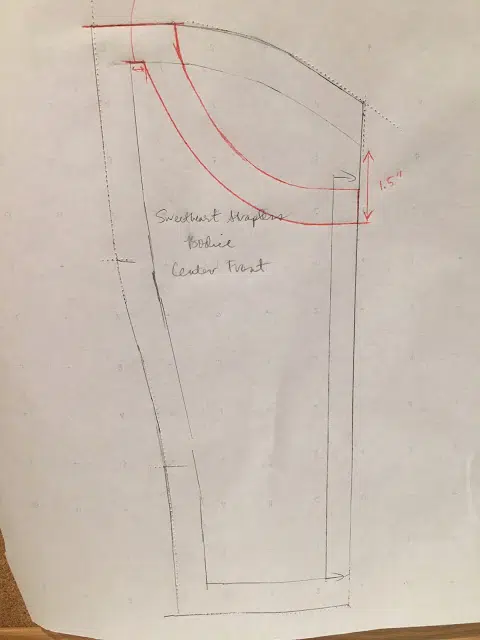 1.5"
Sweetheart Strapless
Bodice
Center Front